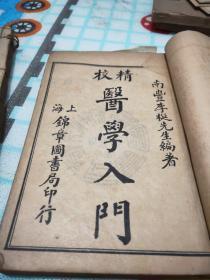 南豐李梴先生編著
精校
醫學入門
上海錦章圖書局印行